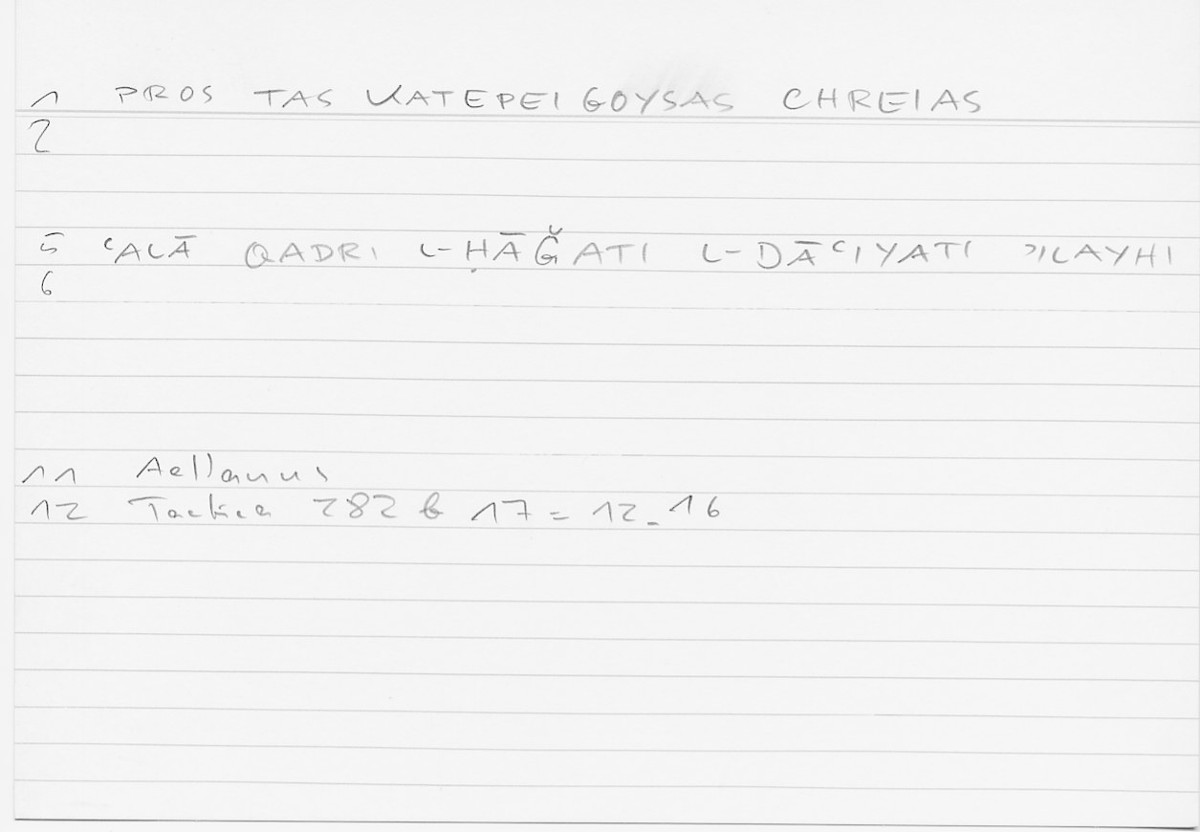 1 PROS TAS KATEPEIGOYSAS CHREIAS
2
5 ʿALĀ QADRI L-ḤĀǦATI L-DĀʿIYATI ʾILAYHI
6
11 Aelianus
12 Tactica 282 b 17 = 12_16